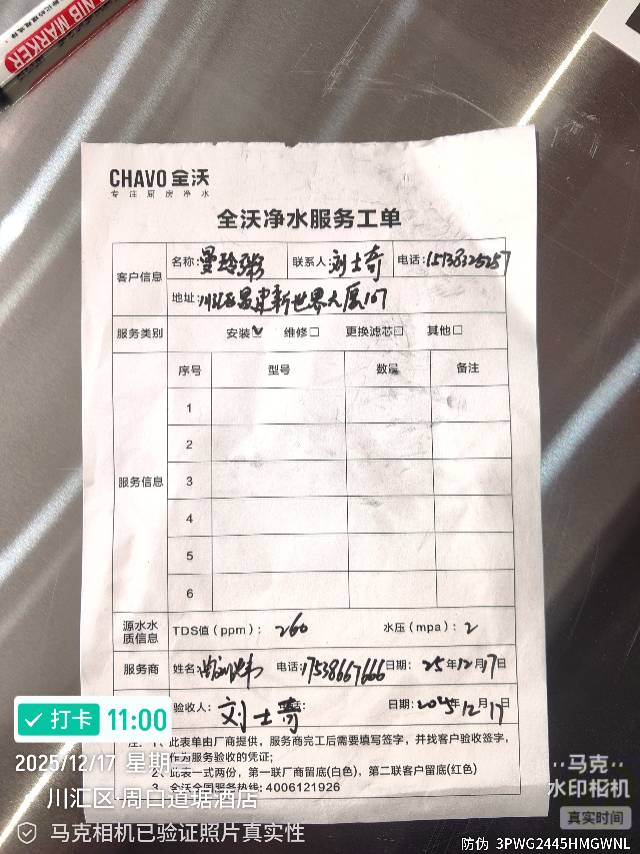 NIB MARKER
CHAVO 全沃
专注厨房净水
全沃净水服务工单
客户信息
名称: 曼玲粥
联系人: 刘士奇
电话: 15738325257
地址: 新世界大厦107
服务类别 安装☑ 维修☐ 更换滤芯☐ 其他☐
服务信息
序号 型号 数量 备注
1
2
3
4
5
6
源水水质信息 TDS值（ppm）: 260 水压（mpa）: 2
服务商 姓名: 电话: 17538667666 日期: 25年12月17日
验收人: 刘士奇 日期: 2025年12月17日
注: 1、此表单由厂商提供，服务商完工后需要填写签字，并找客户验收签字，
作为服务验收的凭证;
2、此表一式两份，第一联厂商留底(白色)，第二联客户留底(红色)
3、全沃全国服务热线: 4006121926
打卡 11:00
2025/12/17 星期三
川汇区·周口道琚酒店
马克相机已验证照片真实性
马克
水印相机
真实时间
防伪 3PWG2445HMGWNL